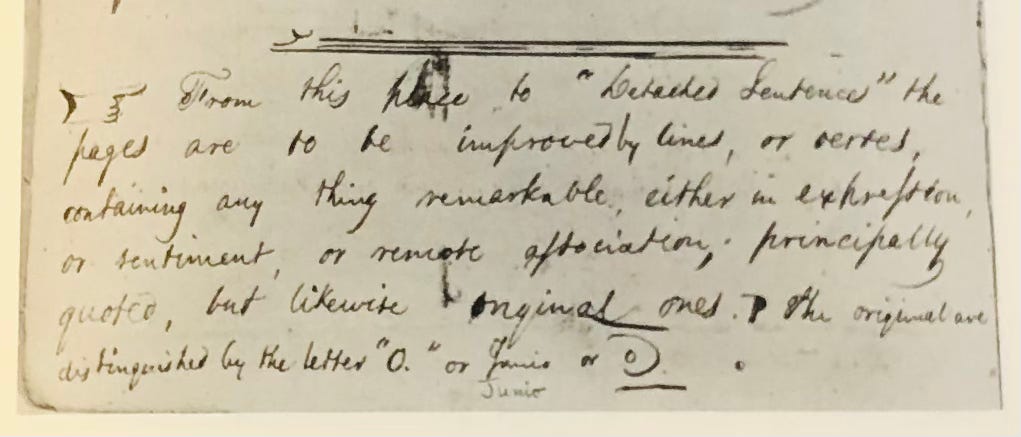 From this place to "Detached Sentences" the
pages are to be improved by lines, or verses,
containing any thing remarkable, either in expreſsion,
or sentiment, or remote aſsociation; principally
quoted, but likewise original ones. The original are
distinguished by the letter "O." or Junio or O
Junio